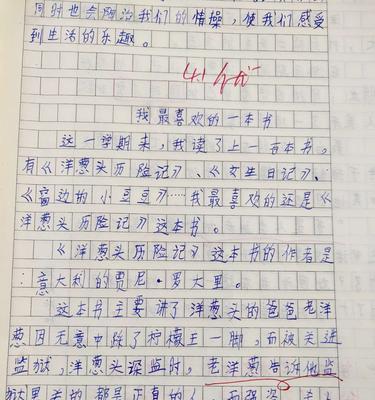 同时也会陶冶我们的情操，使我们感受
到生活的乐趣。
我最喜欢的一本书
这一学期来，我读了上一百本书。
有《洋葱头历险记》、《女生日记》、
《窗边的小豆豆》……我最喜欢的还是《
洋葱头历险记》这本书。
《洋葱头历险记》这本书的作者是
：意大利的贾尼·罗大里。
这本书主要讲了洋葱头的爸爸老洋
葱因无意中踩了柠檬王一脚，而被关进
监狱，洋葱头探监时，老洋葱告诉他监
狱里关的都是正直的人，而强盗